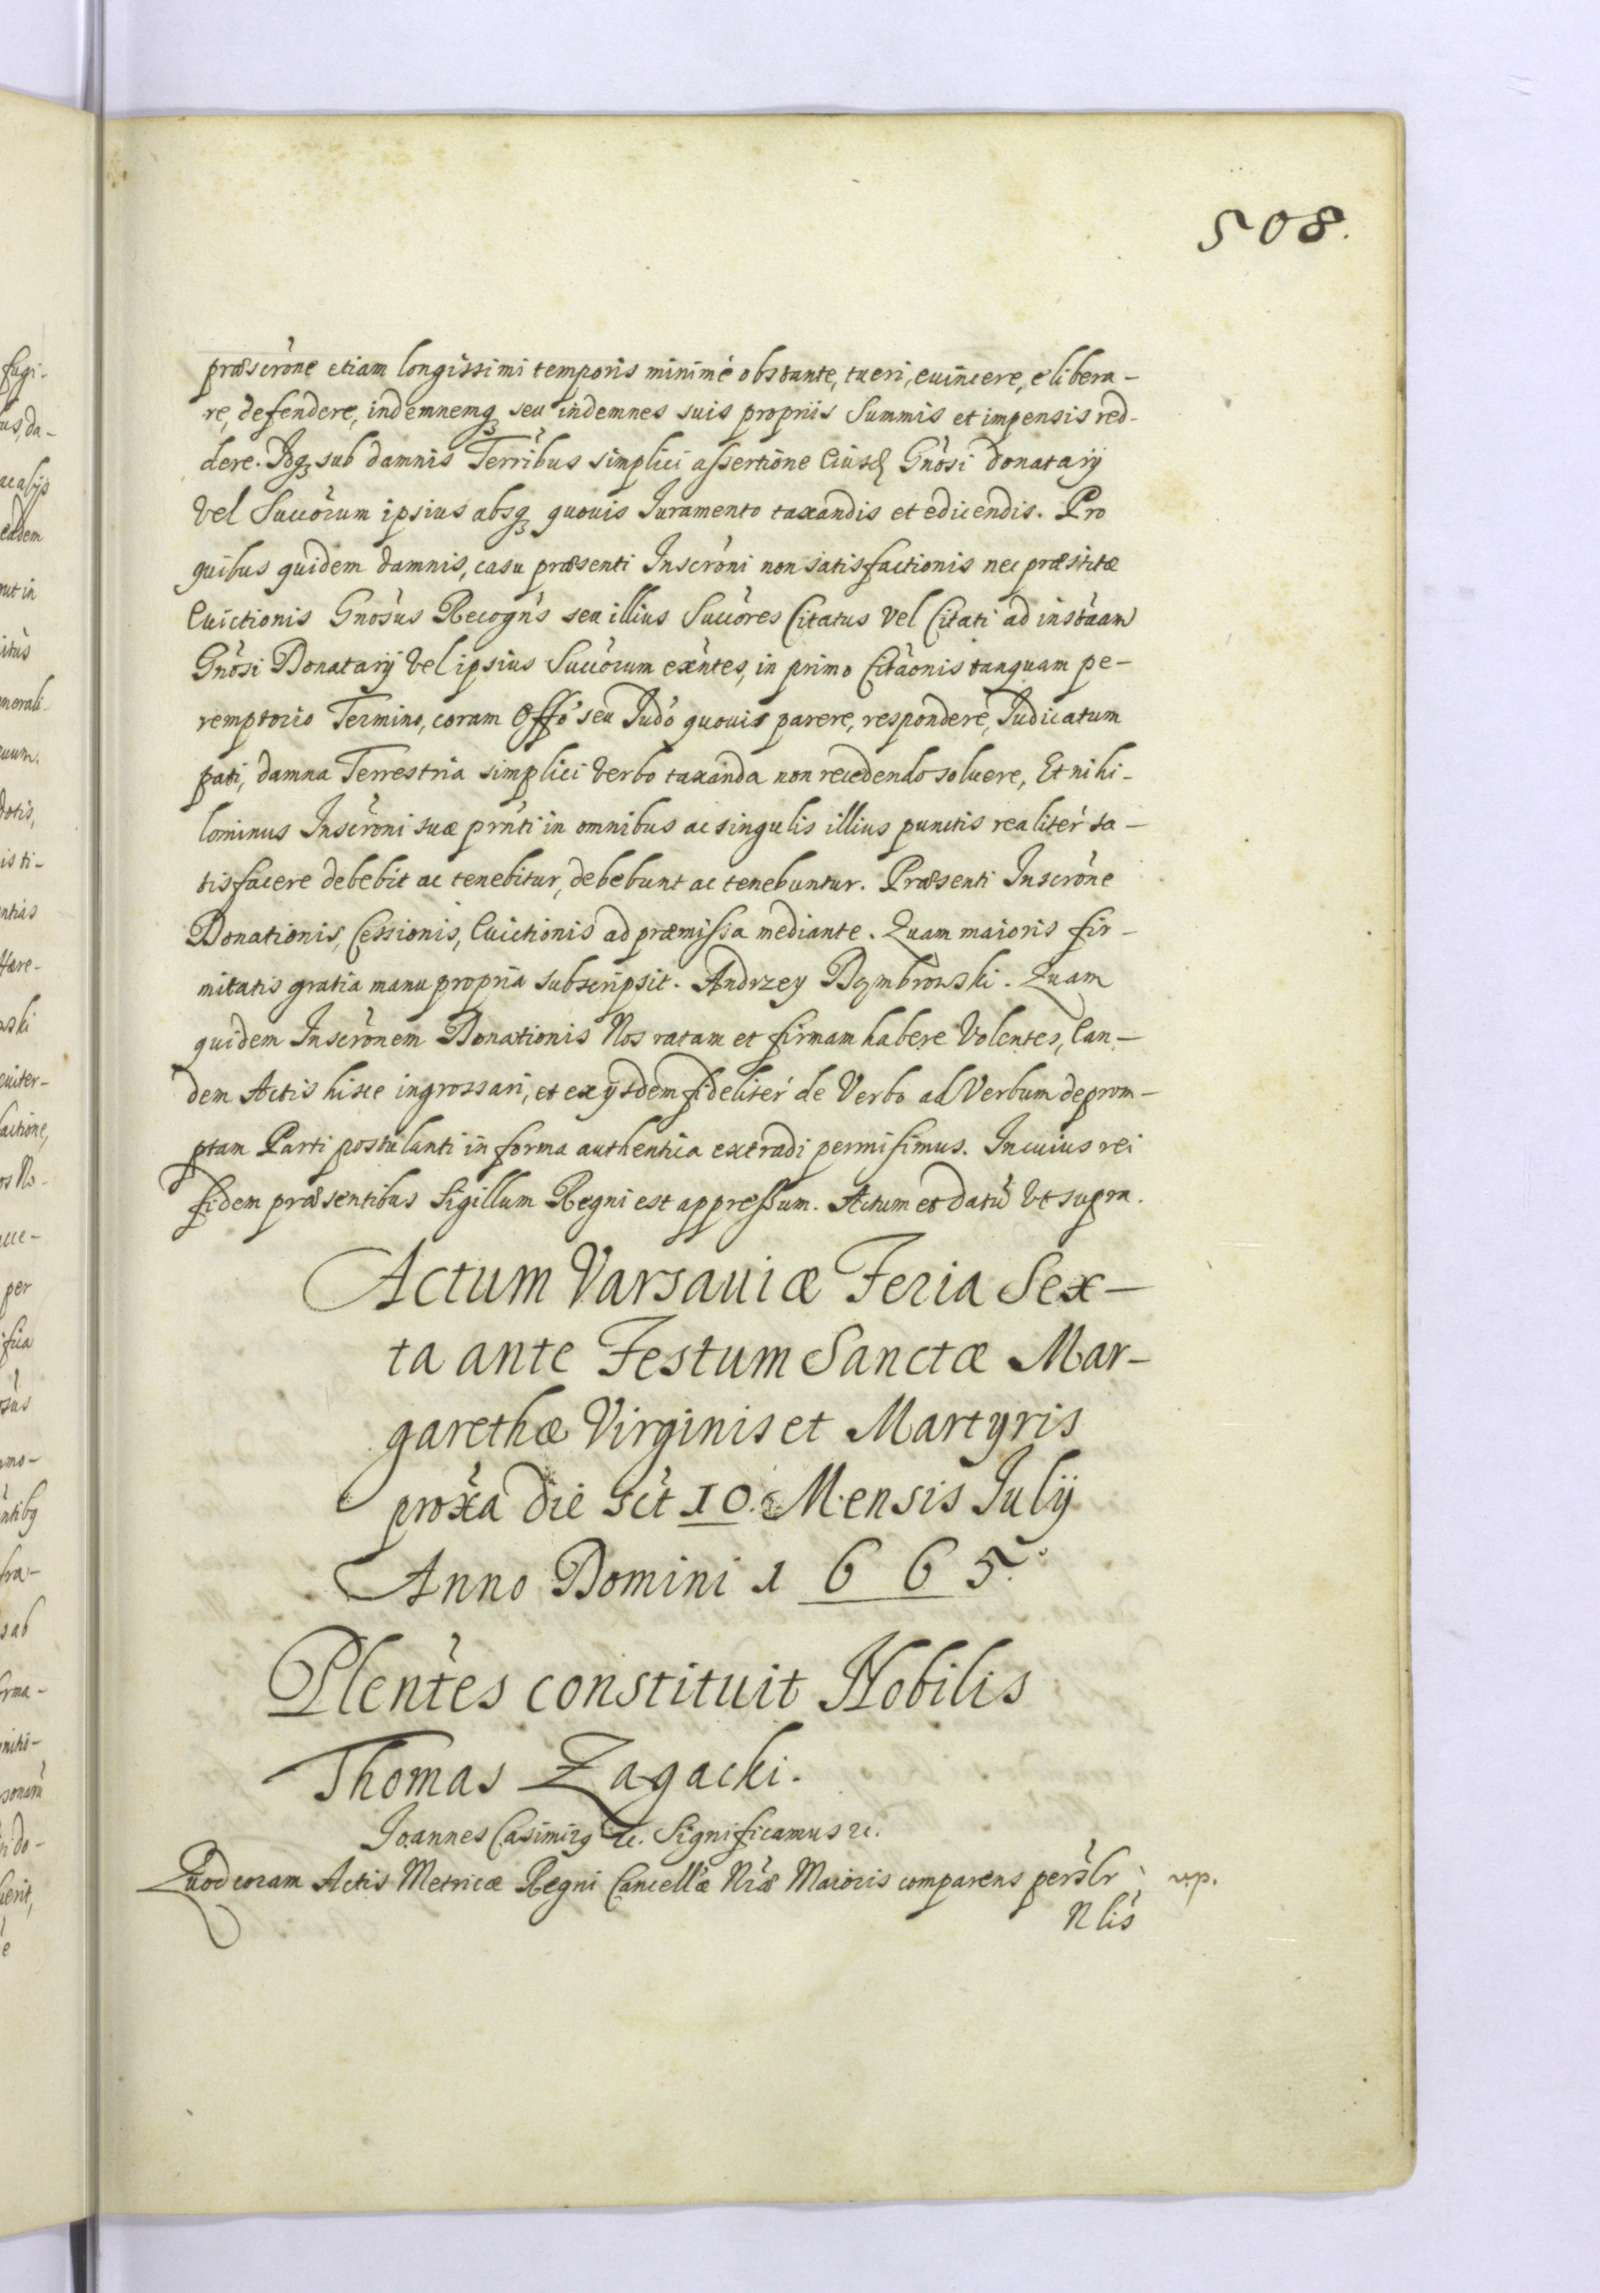 508.
præscrõne etiam longissimi temporis minimé obstante, tueri, euincere, elibera-
re, defendere, indemnemq3 seu indemnes suis proprijs Summis et impensis red-
dere. Idq3 sub damnis Terribus simplici assertione Eiusd Gnosi Donatarij
Vel Succorum ipsius absq3 quouis Iuramento taxandis et edicendis. Pro
quibus quidem damnis, casu præsenti Inscroni non satisfactionis nec præstitæ
Euictionis Gnosus Recogns seu illius Succores Citatus Vel Citati ad instãam
Gnosi Donatarij Vel ipsius Succorum exntes, in primo Citãonis tanquam pe-
remptorio Termino, coram Offo seu Iudo quouis parere, respondere, Iudicatum
pati, damna Terrestria simplici Verbo taxanda non recedendo soluere, Et nihi-
lominus Inscroni suæ prnti in omnibus ac singulis illius punctis realiter sa-
tisfacere debebit ac tenebitur, debebunt ac tenebuntur. Præsenti Inscrone
Donationis, Cessionis, Euictionis ad præmissa mediante. Quam maioris fir-
mitatis gratia manu propria subscripsit. Andrzey Dąmbrowski. Quam
quidem Inscronem Donationis Nos ratam et firmam habere Volentes, Ean-
dem Actis hisce ingrossari, et ex ijsdem fideliter de Verbo ad Verbum deprom-
ptam Parti postulanti in forma authentica extradi permisimus. In cuius rei
fidem præsentibus Sigillum Regni est appressum. Actum et datũ Vt supra.
Actum Varsauiæ Feria Sex-
ta ante Festum Sanctæ Mar-
garethæ Virginis et Martyris
proxã die sct 10. Mensis Iulij
Anno Domini 1665.
Plentes constituit Nobilis
Thomas Zagacki.
Ioannes Casimirg &c. Significamus &c.
Quod coram Actis Metricæ Regni Cancellæ Nræ Maioris comparens perslr
v.p.
Nlis
fugi-
us, da-
ac alijs
eadem
itus
neuali-
dotis,
is ti-
ntias
Hære-
wski
euiter-
actione,
os No-
per
sab